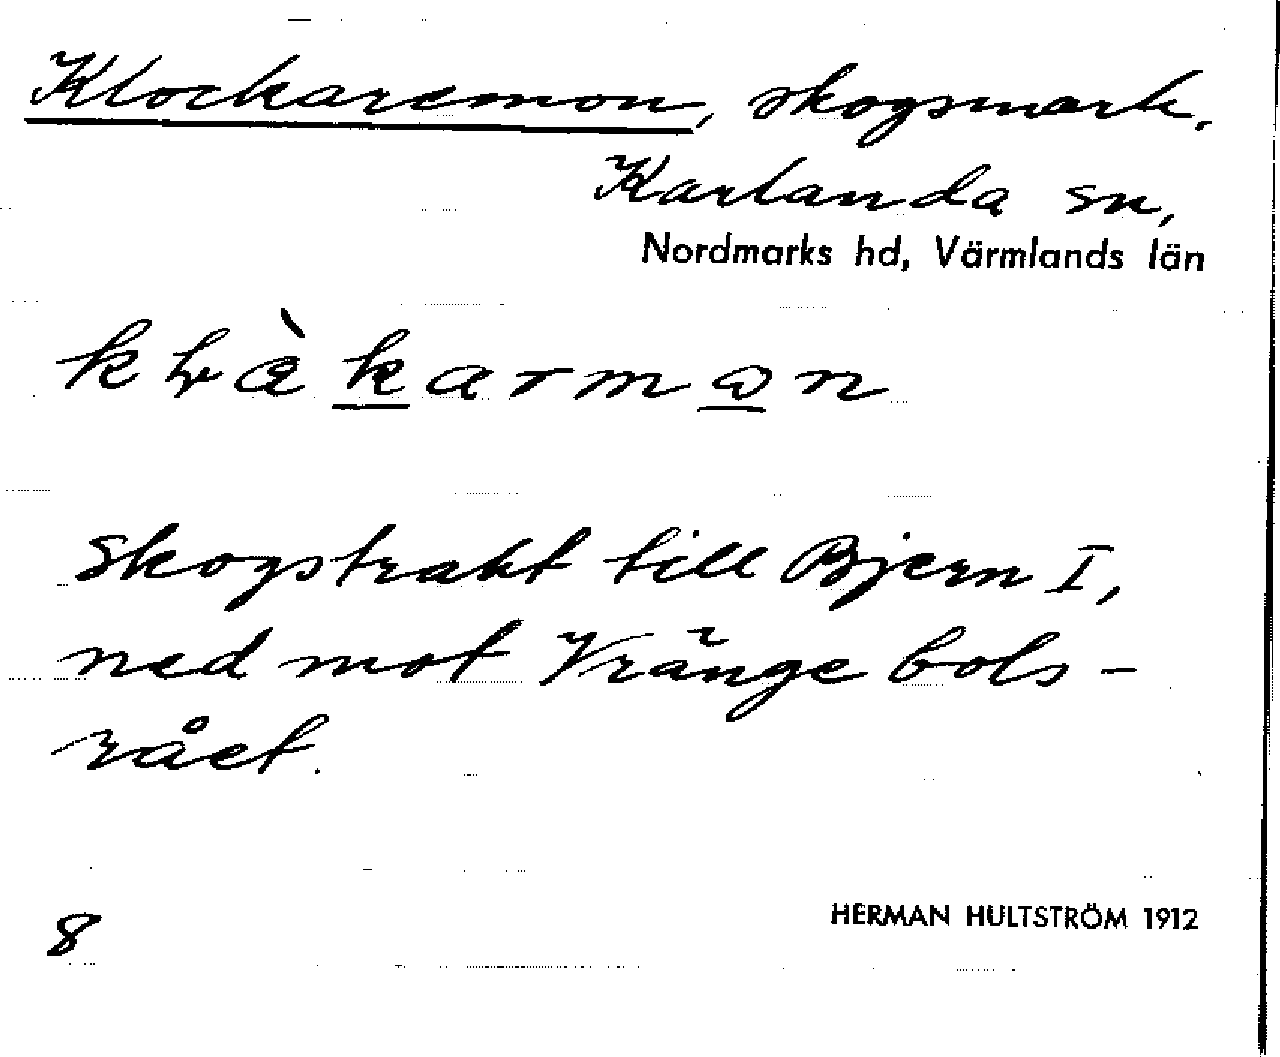 Klockaremon, skogsmark.
Karlanda sn,
Nordmarks hd, Värmlands län
Skogstrakt till Bjern I,
ned mot Vränge bols-
rået.
8
HERMAN HULTSTRÖM 1912